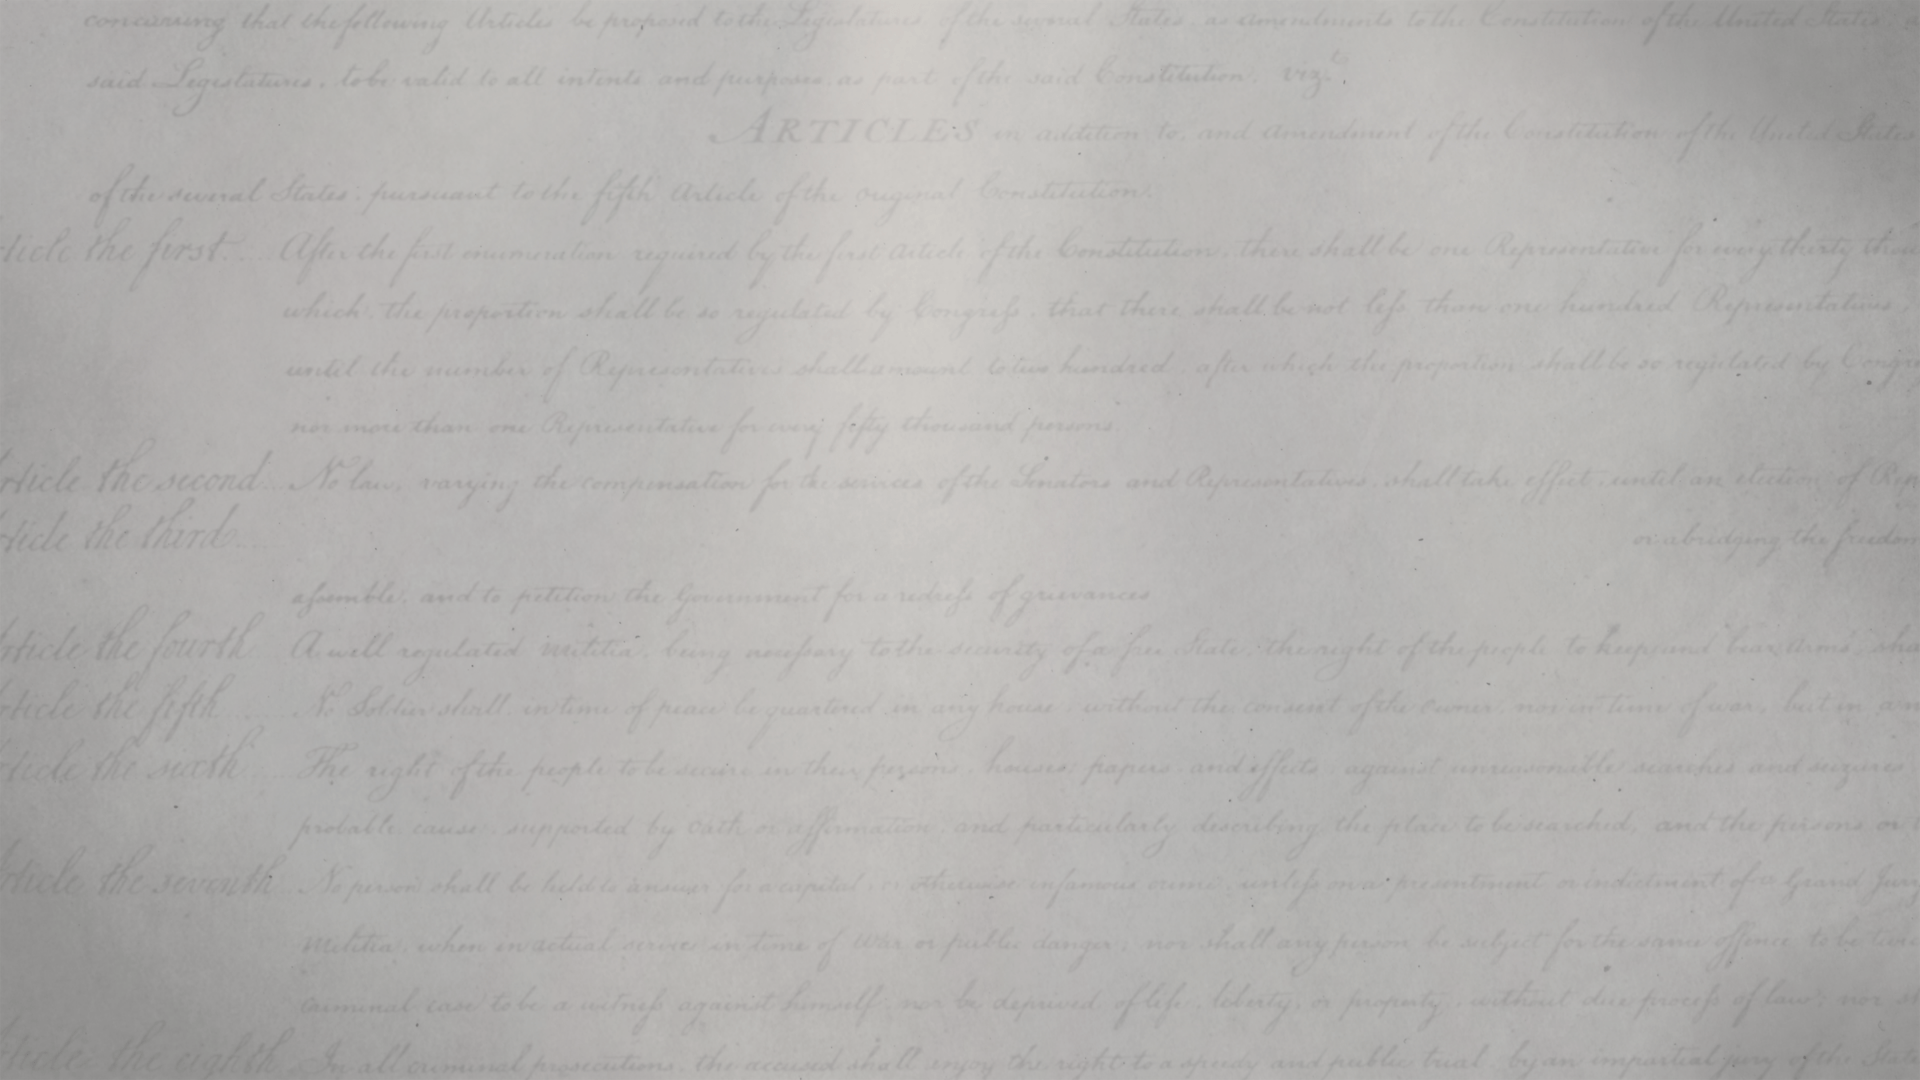 concurring that the following Articles be proposed to the Legislatures of the several States, as amendments to the Constitution of the United States;
said Legislatures, to be valid to all intents and purposes, as part of the said Constitution, viz.t
ARTICLES in addition to, and amendment of the Constitution of the United States
of the several States, pursuant to the fifth Article of the original Constitution.
ticle the first.... After the first enumeration required by the first Article of the Constitution, there shall be one Representative for every thirty thou
which, the proportion shall be so regulated by Congress, that there shall be not less than one hundred Representatives,
until the number of Representatives shall amount to two hundred, after which the proportion shall be so regulated by Congre
nor more than one Representative for every fifty thousand persons.
rticle the second... No law, varying the compensation for the services of the Senators and Representatives, shall take effect, until an election of Rep
ticle the third.... or abridging the freedom
assemble, and to petition the Government for a redress of grievances
rticle the fourth A well regulated militia, being necessary to the security of a free State, the right of the people to keep and bear arms, sha
rticle the fifth .... No Soldier shall, in time of peace be quartered in any house, without the consent of the owner, nor in time of war, but in a
ticle the sixth .... The right of the people to be secure in their persons, houses, papers, and effects, against unreasonable searches and seizures
probable cause, supported by oath or affirmation, and particularly describing the place to be searched, and the persons or t
ticle the seventh .. No person shall be held to answer for a capital, or otherwise infamous crime, unless on a presentment or indictment of a Grand Jury
Militia, when in actual service in time of War or public danger; nor shall any person be subject for the same offence to be twic
criminal case to be a witness against himself, nor be deprived of life, liberty, or property, without due process of law; nor sh
ticle the eighth In all criminal prosecutions, the accused shall enjoy the right to a speedy and public trial, by an impartial jury of the State